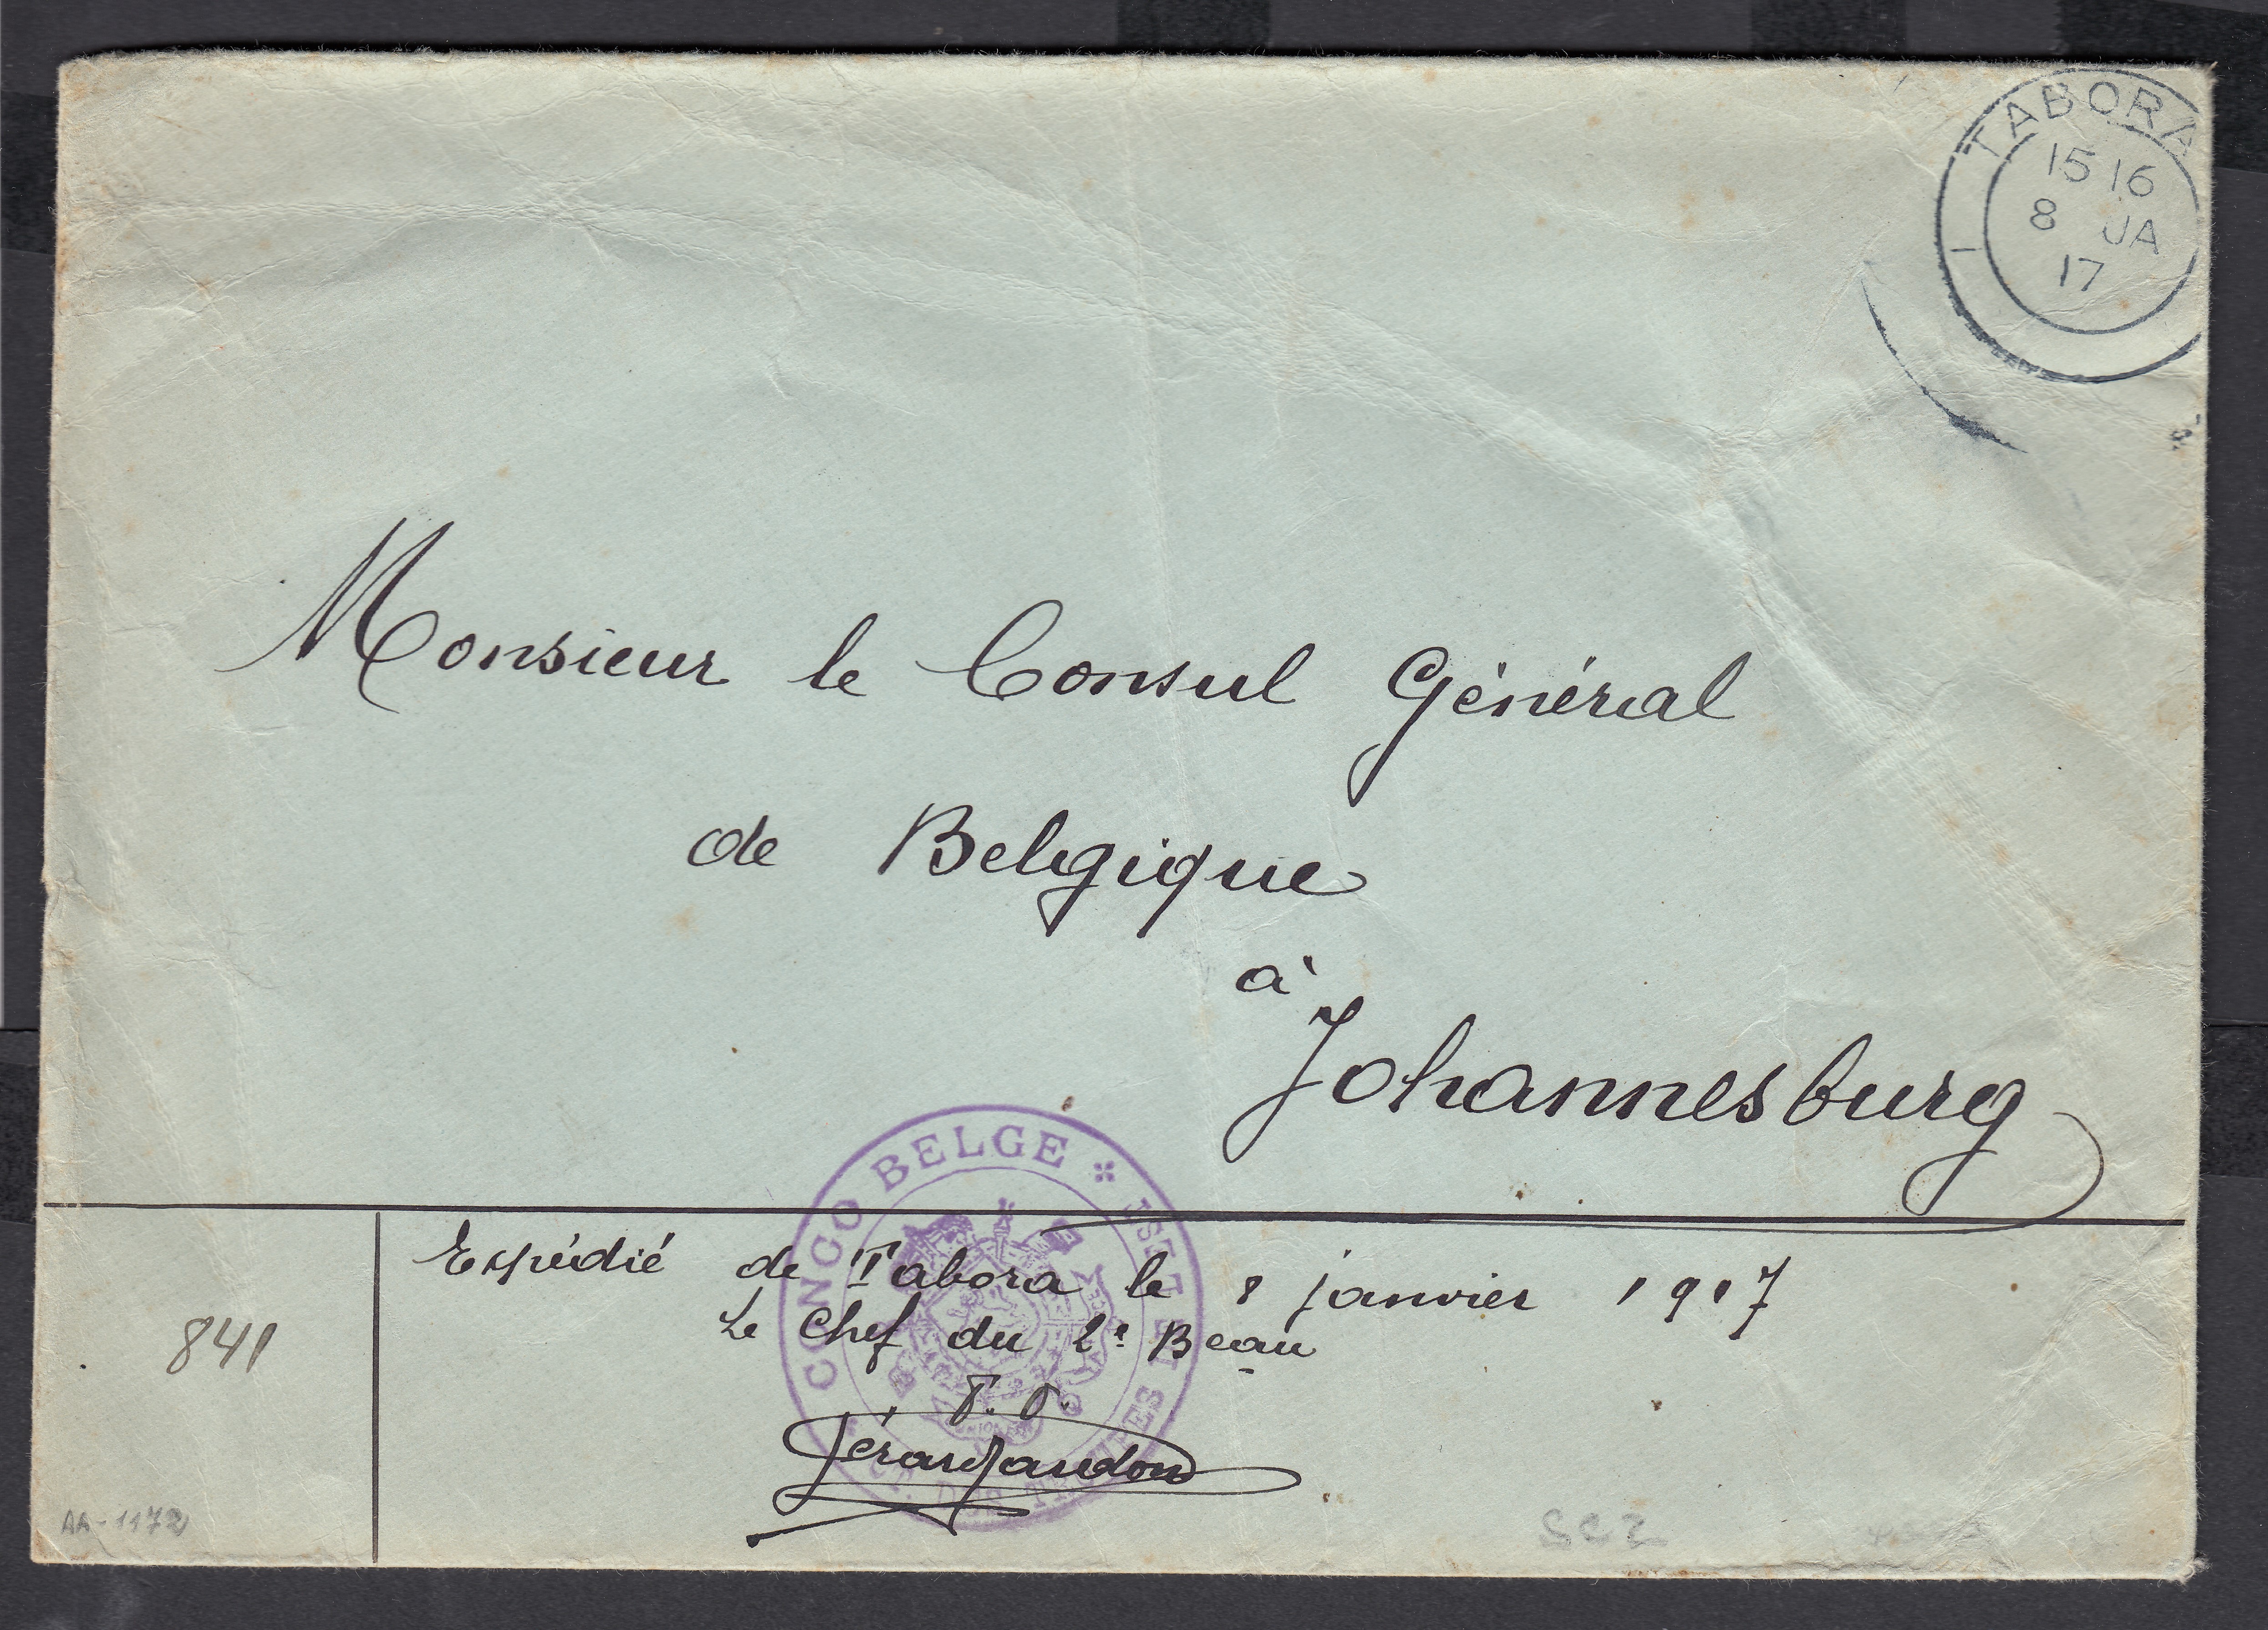 TABORA
15 16
8 JA
17
1
Monsieur le Consul Général
de Belgique
à
Johannesburg
CONGO BELGE
EST DES TROUPES DE
Expédié de Tabora le 8 janvier 1917
Le Chef du 2e Beau
841
AA-1172